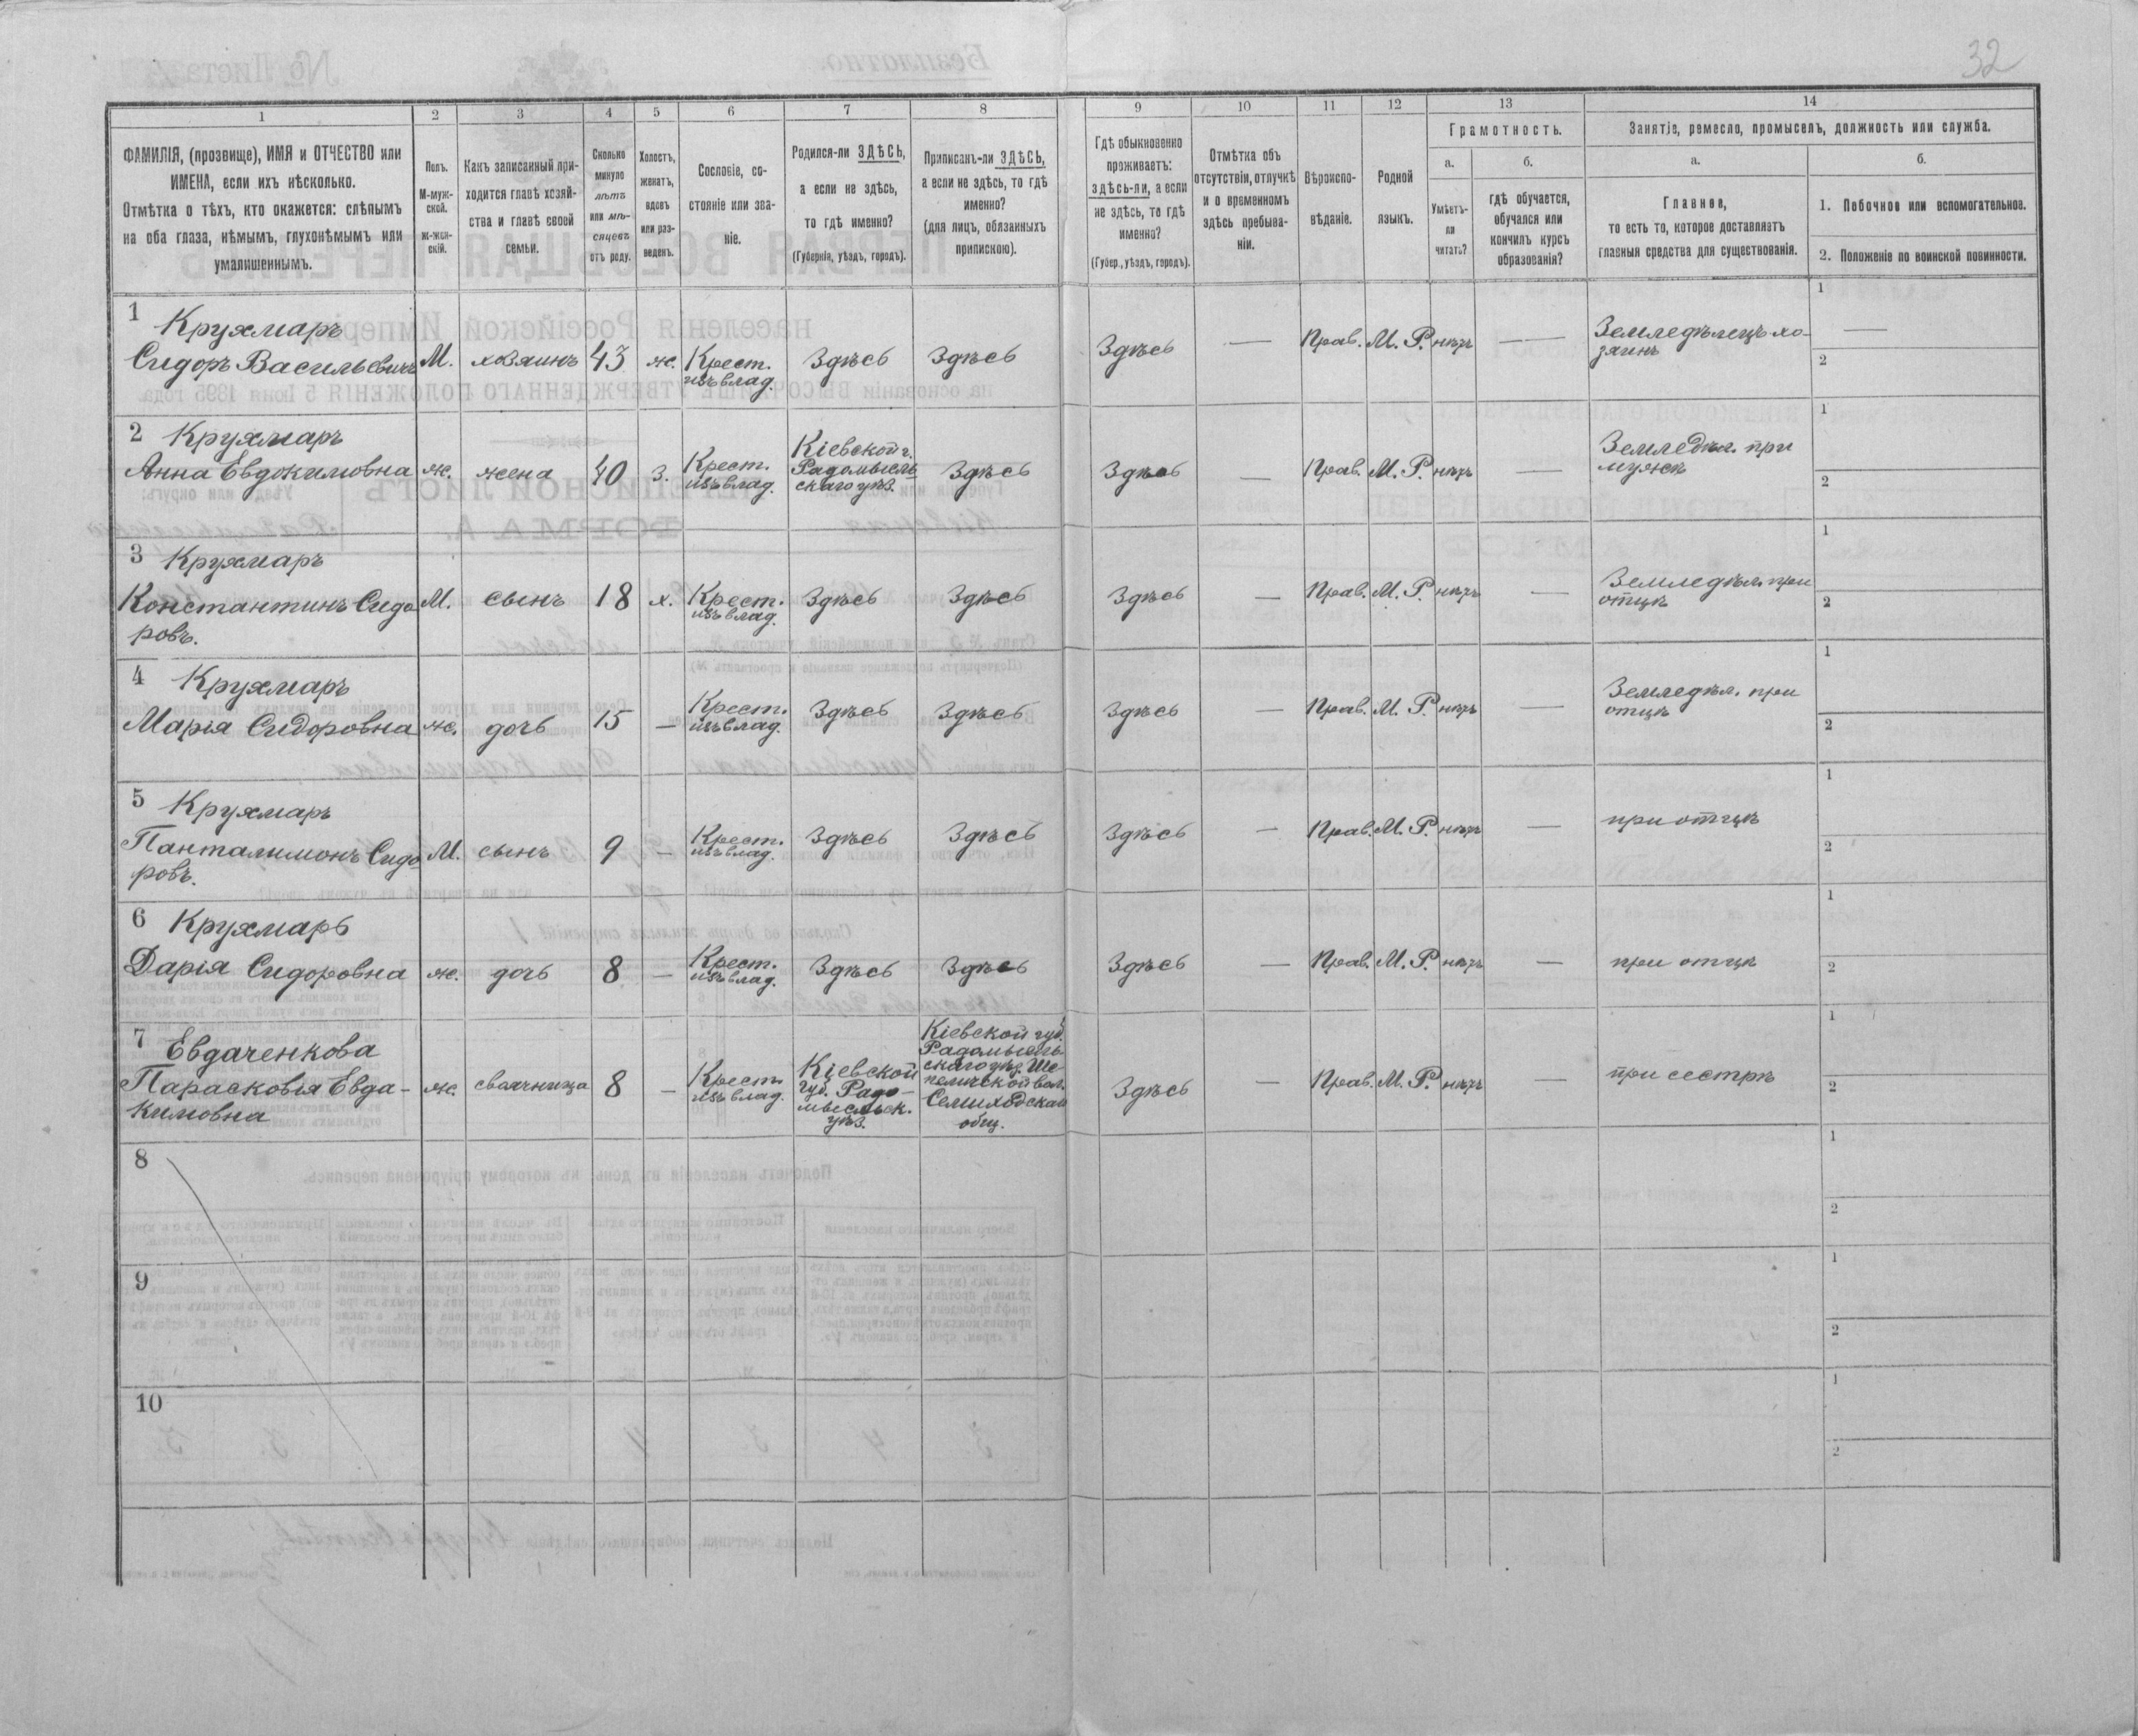 32
1 2 3 4 5 6 7 8 9 10 11 12 13 14
ФАМИЛІЯ, (прозвище), ИМЯ и ОТЧЕСТВО или
ИМЕНА, если ихъ нѣсколько.
Отмѣтка о тѣхъ, кто окажется: слѣпымъ
на оба глаза, нѣмымъ, глухонѣмымъ или
умалишеннымъ.
Полъ.
М-муж-
ской.
Ж-жен-
скій.
Какъ записанный при-
ходится главѣ хозяй-
ства и главѣ своей
семьи.
Сколько
минуло
лѣтъ
или мѣ-
сяцевъ
отъ роду.
Холостъ,
женатъ,
вдовъ
или раз-
веденъ.
Сословіе, со-
стояніе или зва-
ніе.
Родился-ли ЗДѢСЬ,
а если не здѣсь,
то гдѣ именно?
(Губернія, уѣздъ, городъ).
Приписанъ-ли ЗДѢСЬ,
а если не здѣсь, то гдѣ
именно?
(для лицъ, обязанныхъ
припискою).
Гдѣ обыкновенно
проживаетъ:
здѣсь-ли, а если
не здѣсь, то гдѣ
именно?
(Губер., уѣздъ, городъ).
Отмѣтка объ
отсутствіи, отлучкѣ
и о временномъ
здѣсь пребыва-
ніи.
Вѣроиспо-
вѣданіе.
Родной
языкъ.
Грамотность.
а.
Умѣетъ-
ли
читать?
б.
гдѣ обучается,
обучался или
кончилъ курсъ
образованія?
Занятіе, ремесло, промыселъ, должность или служба.
а.
Главное,
то есть то, которое доставляетъ
главныя средства для существованія.
б.
1. Побочное или вспомогательное.
2. Положеніе по воинской повинности.
1 Крухмаръ
Сидоръ Васильевичъ М. хозяинъ 43 ж. Крест.
изъ влад.
Здѣсь Здѣсь Здѣсь — Прав. М. Р. нѣтъ —
Земледѣлецъ хо-
зяинъ
1 —
2
2 Крухмаръ
Анна Евдокимовна ж. жена 40 З. Крест.
изъ влад.
Кіевской г.
Радомысль-
скаго уѣз.
Здѣсь Здѣсь — Прав. М. Р. нѣтъ —
Земледѣл. при
мужѣ
1
2
3 Крухмаръ
Константинъ Сидо
ровъ. М. сынъ 18 х. Крест.
изъ влад.
Здѣсь Здѣсь Здѣсь — Прав. М. Р. нѣтъ —
Земледѣл. при
отцѣ
1
2
4 Крухмаръ
Марія Сидоровна ж. дочь 15 — Крест.
изъ влад.
Здѣсь Здѣсь Здѣсь — Прав. М. Р. нѣтъ —
Земледѣл. при
отцѣ
1
2
5 Крухмаръ
Панталимонъ Сидо
ровъ. М. сынъ 9 — Крест.
изъ влад.
Здѣсь Здѣсь Здѣсь — Прав. М. Р. нѣтъ —
при отцѣ
1
2
6 Крухмарь
Дарія Сидоровна ж. дочь 8 — Крест.
изъ влад.
Здѣсь Здѣсь Здѣсь — Прав. М. Р. нѣтъ —
при отцѣ
1
2
7 Евдаченкова
Парасковія Евда-
кимовна ж. сваячница 8 — Крест.
изъ влад.
Кіевской
губ. Радо-
мысльск.
уѣз.
Кіевской губ.
Радомысль-
скаго уѣз. Ше
пеличской вол.
Семиходская
общ.
Здѣсь — Прав. М. Р. нѣтъ —
при сестрѣ
1
2
8
1
2
9
1
2
10
1
2